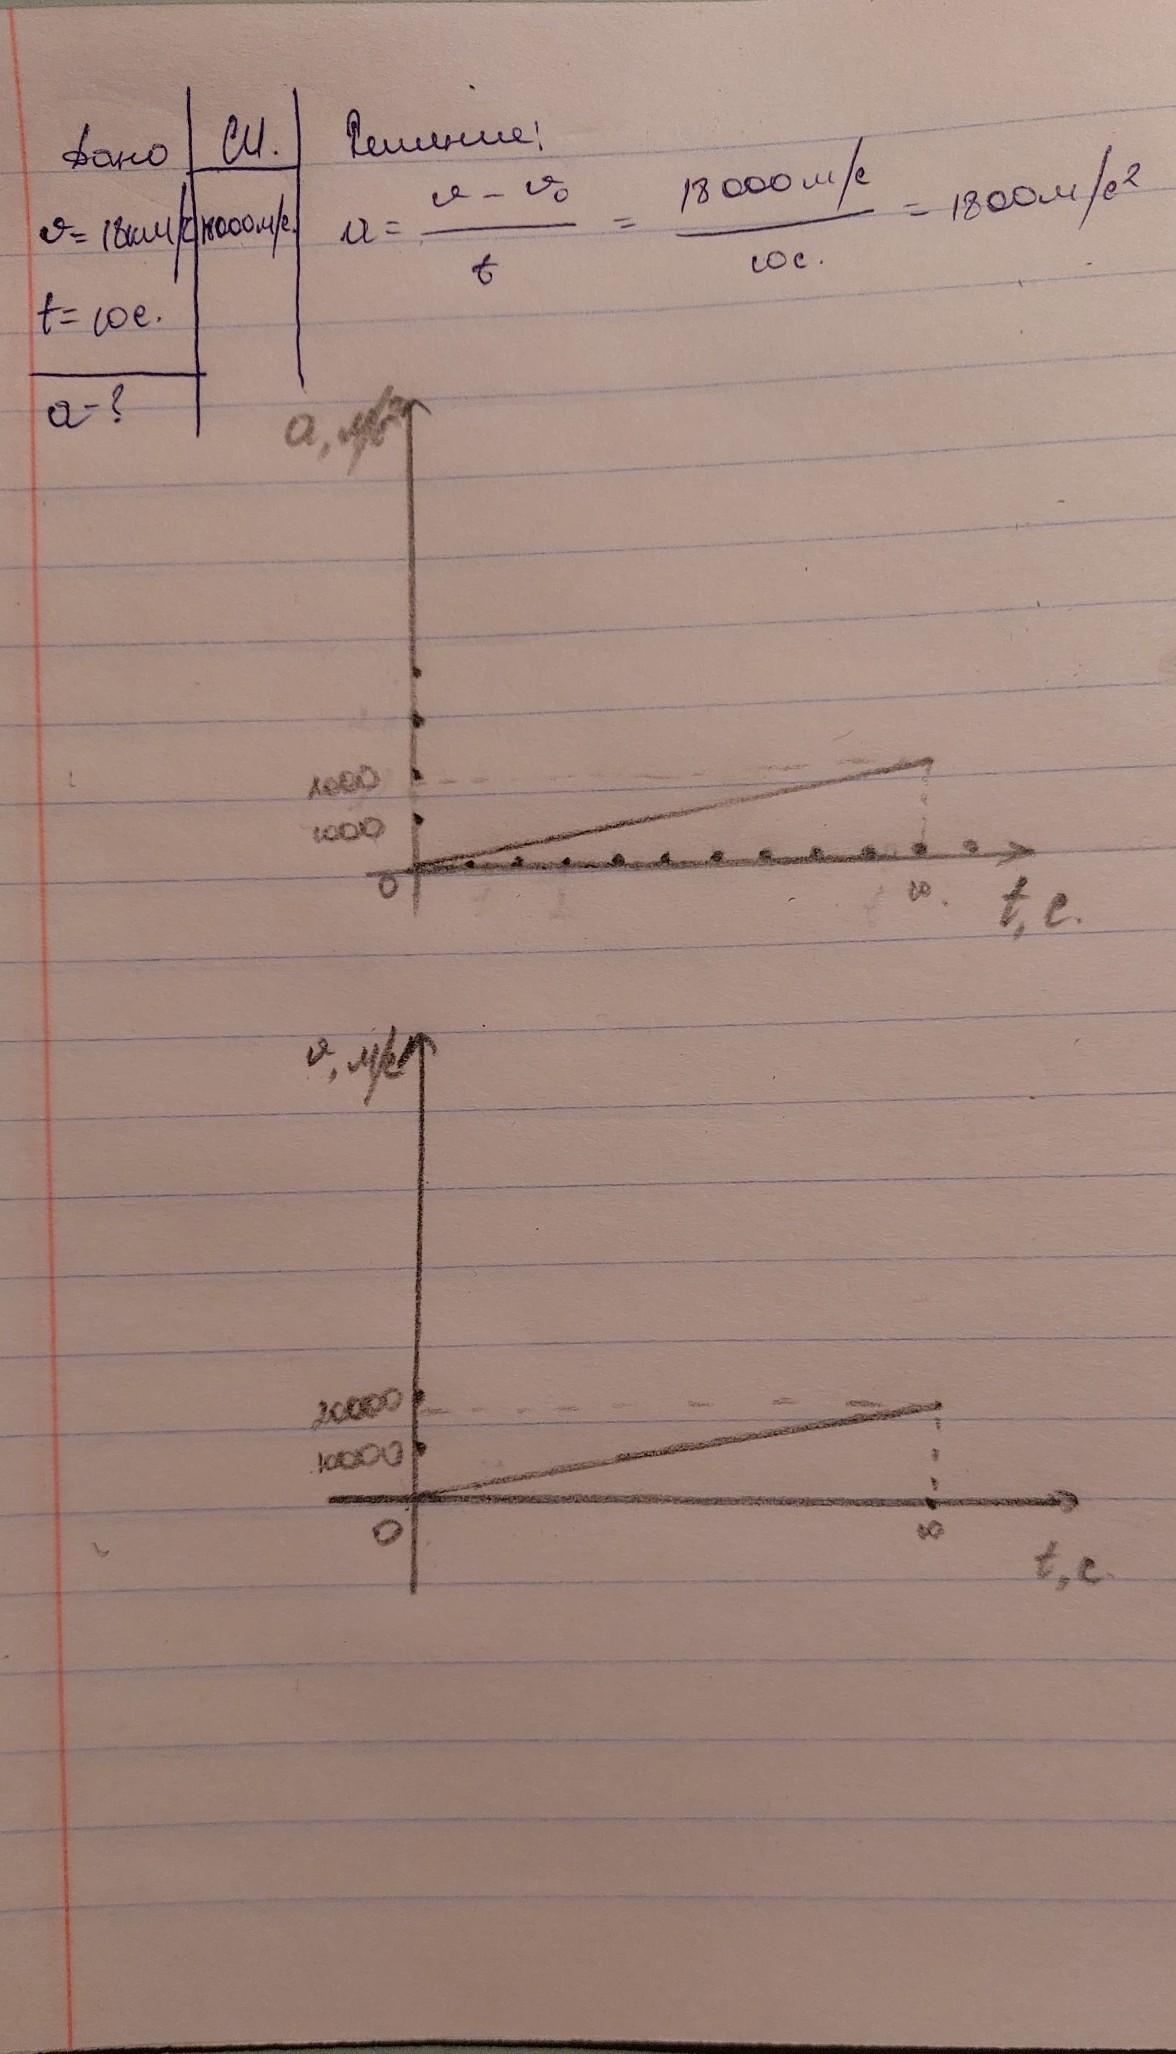 Дано СИ. Решение!
v = 18км/с 18000м/с. a = v - v₀ / t = 18000м/с / 10с. = 1800м/с²
t = 10с.
a - ?
a, м/с²
2000
1000
0 10. t, с.
v, м/с
20000
10000
0 10
t, с.